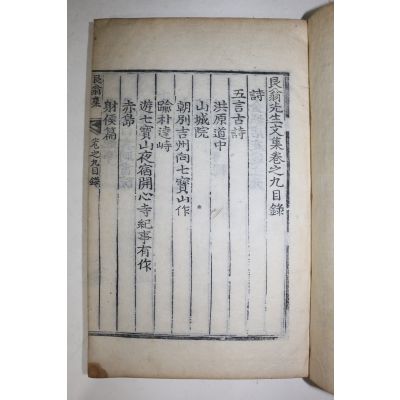 艮翁先生文集卷之九目錄
詩
五言古詩
洪原道中
山城院
朝別吉州向七寶山作
踰朴達峙
遊七寶山夜宿開心寺紀事有作
赤島
射侯篇
艮翁集 卷之九目錄